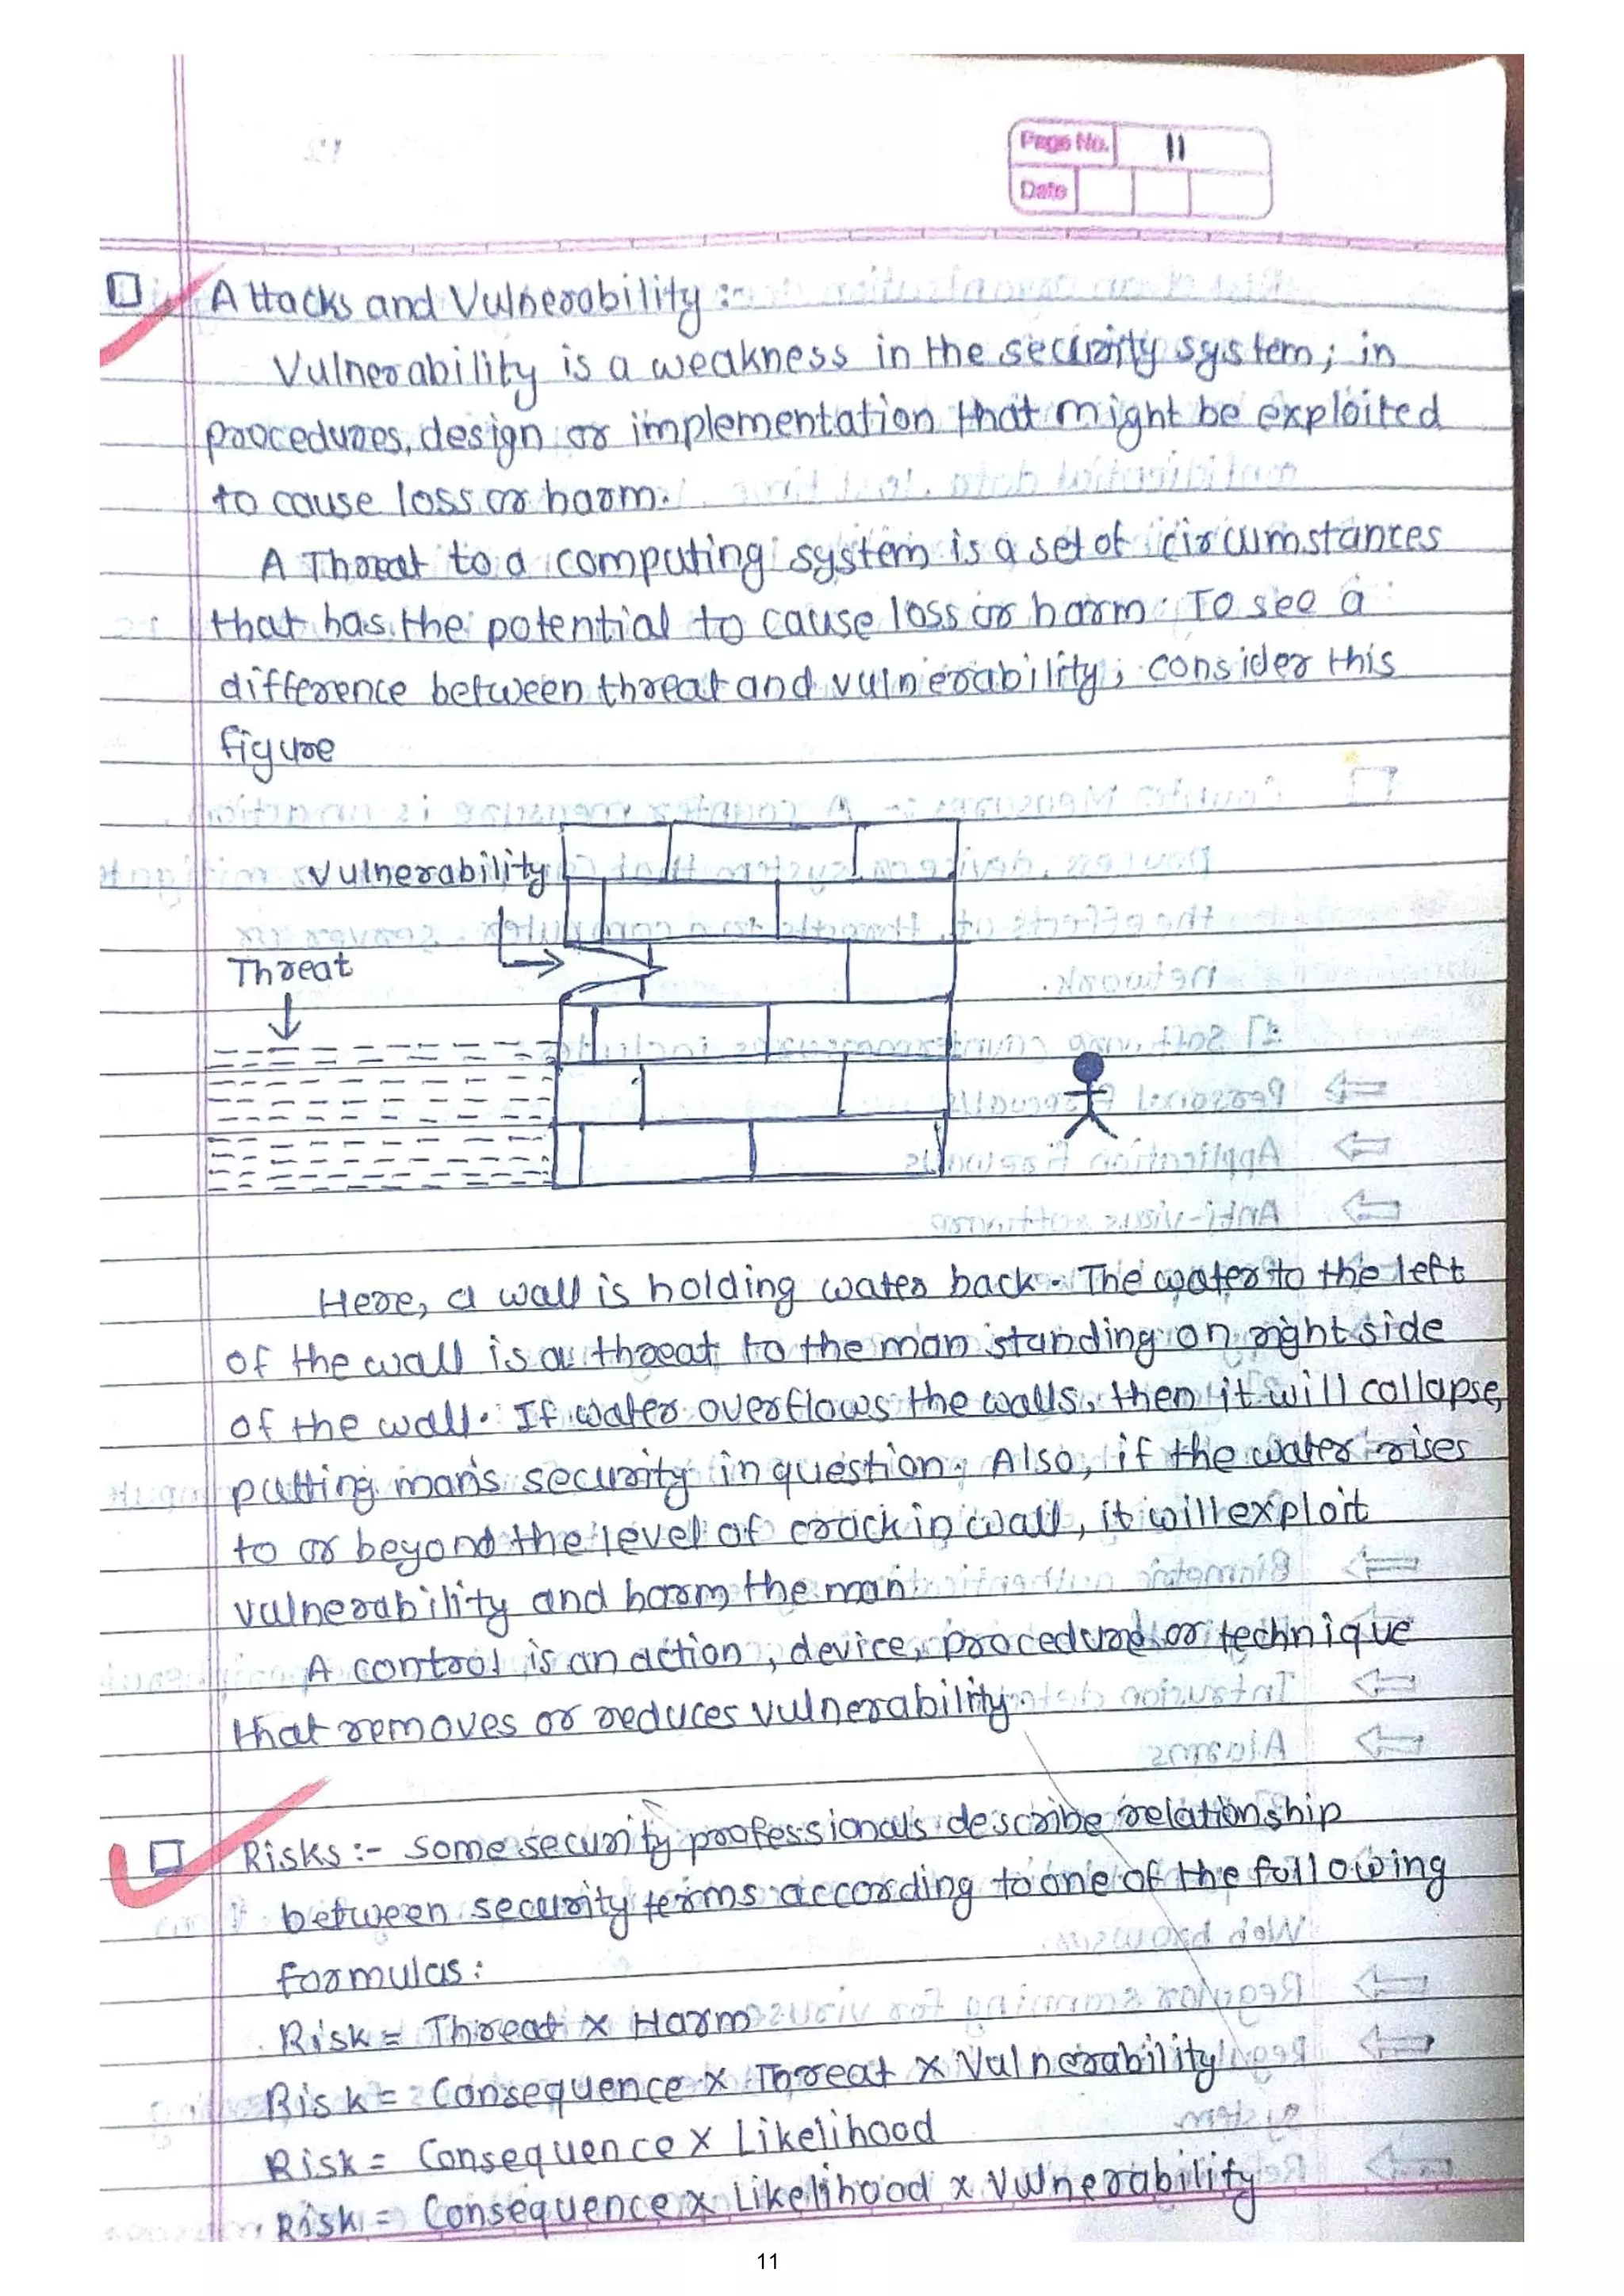 Page No. 11
Date
Attacks and Vulnerability :-
Vulnerability is a weakness in the security system; in
procedures, design or implementation that might be exploited
to cause loss or harm.
A Threat to a computing system is a set of circumstances
that has the potential to cause loss or harm. To see a
difference between threat and vulnerability, consider this
figure
Vulnerability
Threat
Here, a wall is holding water back. The water to the left
of the wall is a threat to the man standing on right side
of the wall. If water overflows the walls, then it will collapse,
putting man's security in question. Also, if the water rises
to or beyond the level of crack in wall, it will exploit
vulnerability and harm the man
A control is an action, device, procedure or technique
that removes or reduces vulnerability.
Risks :- Some security professionals describe relationship
between security terms according to one of the following
formulas:
Risk = Threat x Harm
Risk = Consequence x Threat x Vulnerability
Risk = Consequence x Likelihood
Risk = Consequence x Likelihood x Vulnerability
11